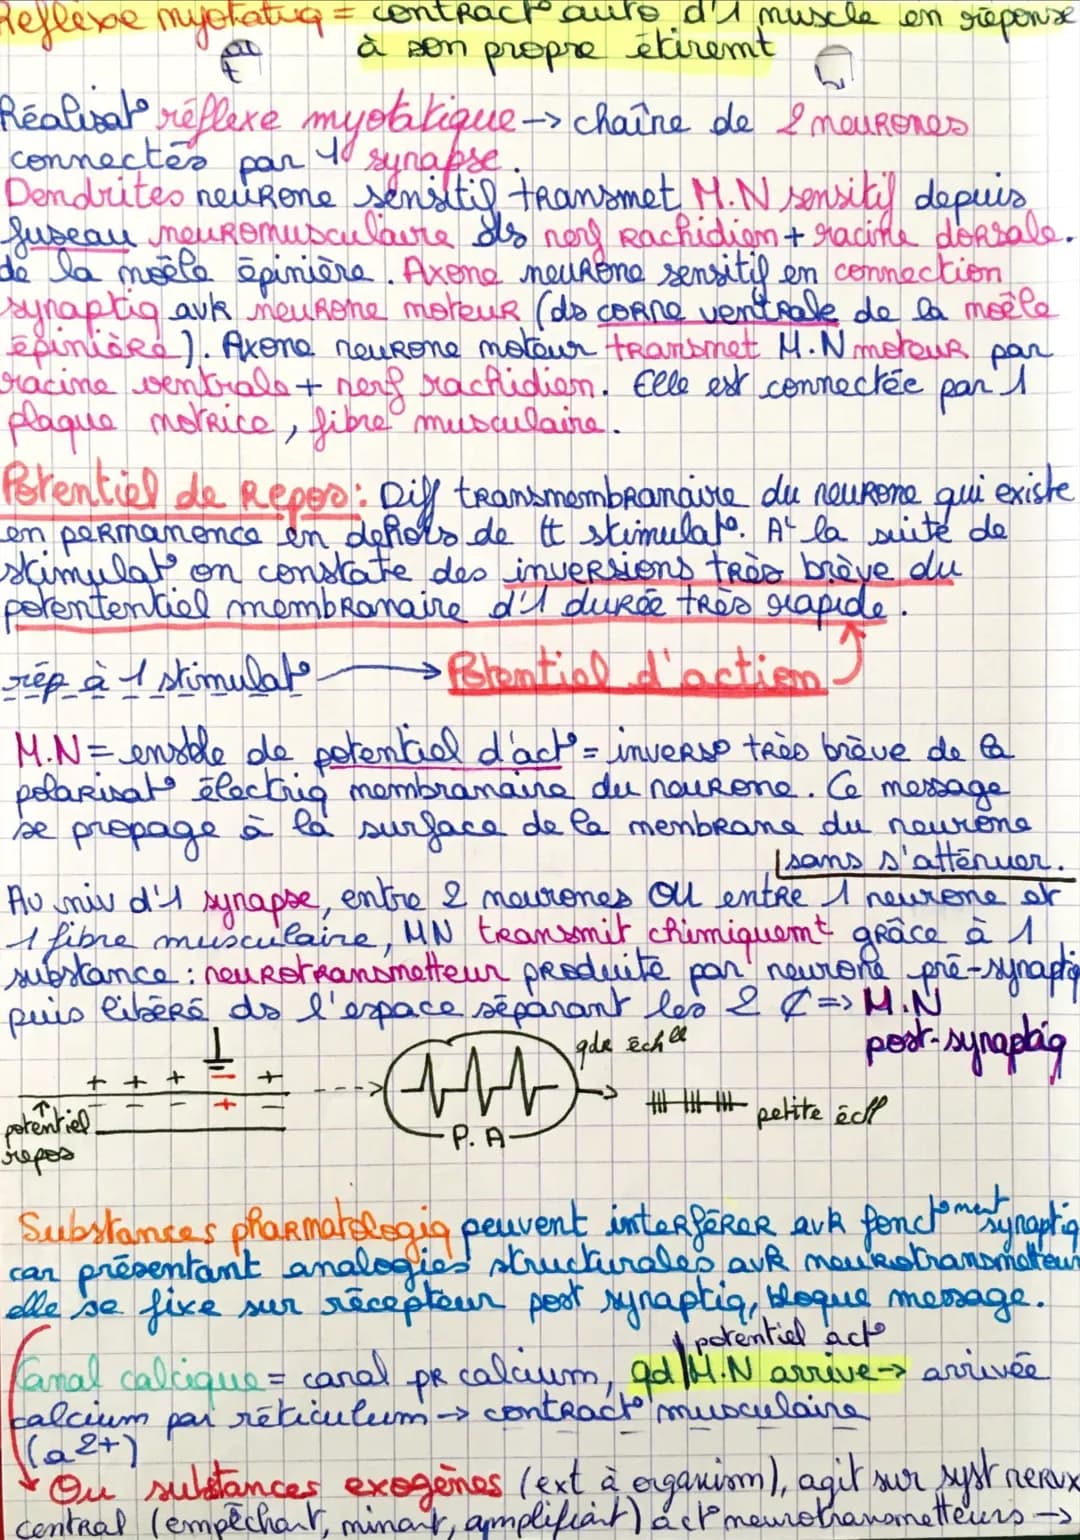 Réflexe myotatiq = contract° auto d'1 muscle en réponse
à son propre étiremt
Réalisat° réflexe myotatique → chaîne de 2 neurones
connectés par 1 synapse.
Dendrites neurone sensitif transmet M.N sensitif depuis
fuseau neuromusculaire ds nerf Rachidien + racine dorsale.
de la moële épinière. Axone neurone sensitif en connection
synaptiq avk neurone moteur (ds corne ventrale de la moële
épinière). Axone neurone moteur transmet M.N moteur par
racine ventrale + nerf rachidien. Elle est connectée par 1
plaque motrice, fibre musculaire.
Potentiel de Repos : Diff transmembranaire du neurone qui existe
en permanence en dehors de tt stimulat°. A la suite de
stimulat° on constate des inversions très brève du
potentiel membranaire d'1 durée très rapide.
rép à 1 stimulat° → Potentiel d'action
M.N = ensble de potentiel d'act° = inverse très brève de la
polarisat° électriq membranaire du neurone. Ce message
se propage à la surface de la membrane du neurone
sans s'atténuer.
Au niv d'1 synapse, entre 2 neurones OU entre 1 neurone et
1 fibre musculaire, MN transmit chimiquemt grâce à 1
substance : neurotransmetteur produite par neurone pré-synaptiq
puis libéré ds l'espace séparant les 2 ₵ => M.N
post-synaptiq
gde éch
+ + + - +
- - - + -
potentiel
repos
P. A
petite éch
Substances pharmatologiq peuvent interférer avk fonct°ment synaptiq
car présentant analogies structurales avk neurotransmetteur
elle se fixe sur récepteur post synaptiq, bloque message.
potentiel act°
Canal calcique = canal pr calcium, qd M.N arrive → arrivée
calcium par réticulum → contract° musculaire
(a 2+)
Ou substances exogènes (ext à organism), agit sur syst nervx
central (empêchant, minant, amplifiant) act° neurotransmetteurs →